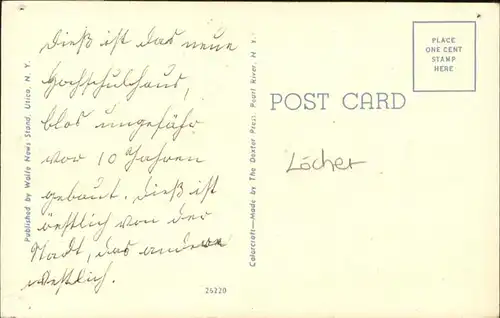 Dieß ist das neue
Hochschulhaus,
blos ungefähr
vor 10 Jahren
gebaut. Dieß ist
östlich von der
Stadt, das andere
westlich.
Published by Wolfe News Stand, Utica, N. Y.
26220
Colorcraft—Made by The Dexter Press, Pearl River, N. Y.
POST CARD
Löcher
PLACE
ONE CENT
STAMP
HERE